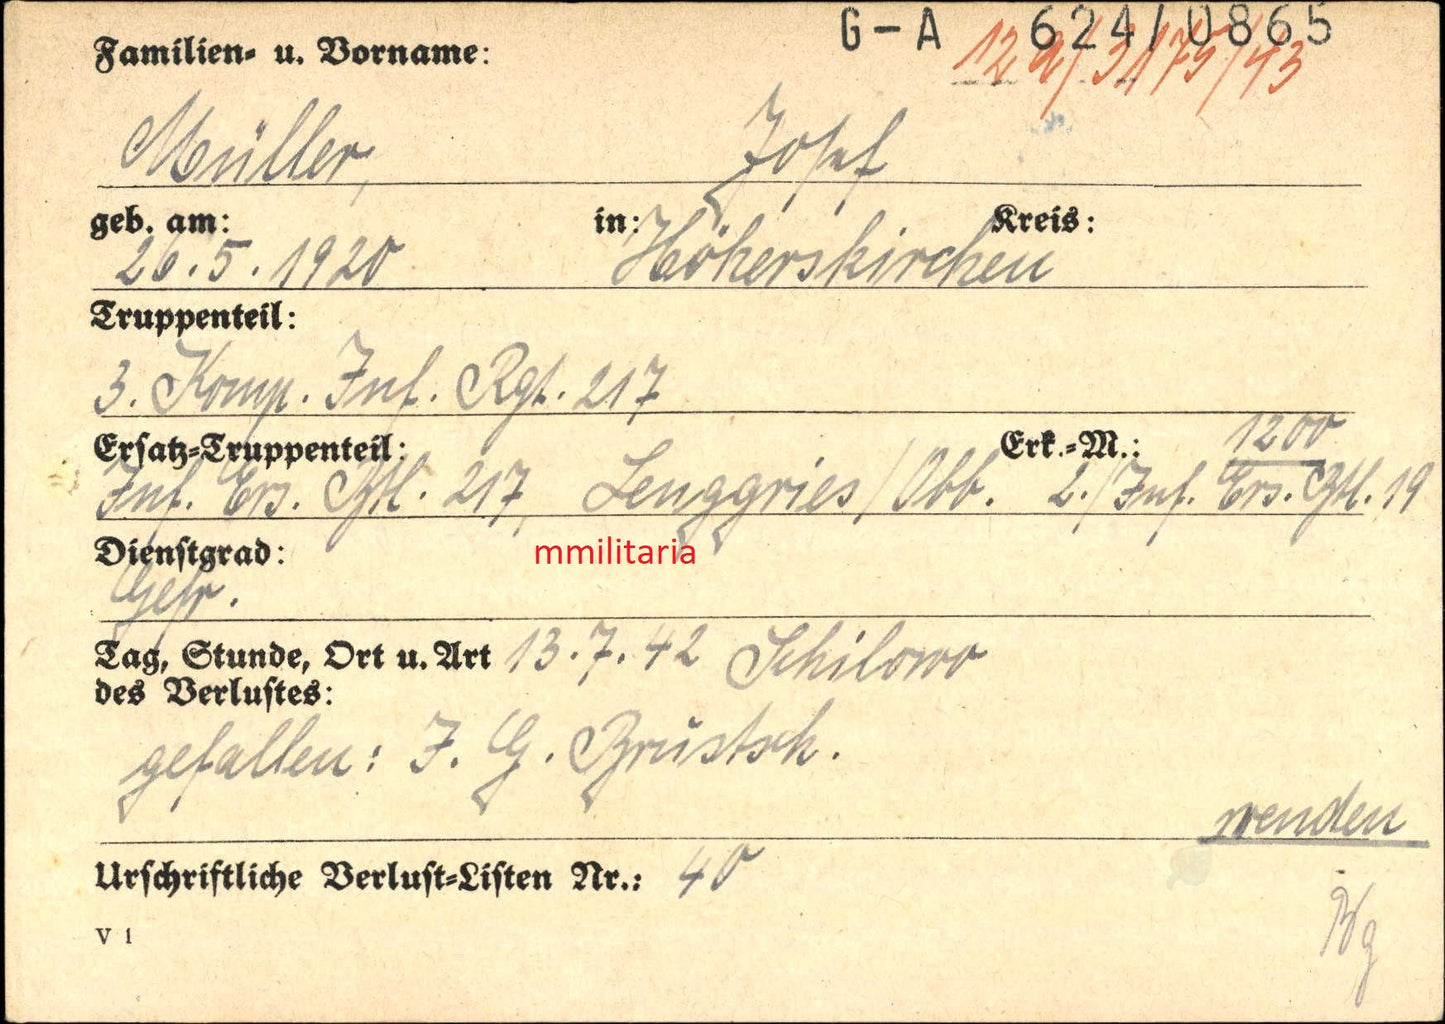 G-A 624/0865
12 a/3175/43
Familien- u. Vorname:
Müller, Josef
geb. am: in: Kreis:
26.5.1920 Höherskirchen
Truppenteil:
3. Komp. Inf. Rgt. 217
Ersatz-Truppenteil: Erk.-M.: 1200
Inf. Ers. Btl. 217, Lenggries/Obb. 2./Inf. Ers. Btl. 19
mmilitaria
Dienstgrad:
Gefr.
Tag, Stunde, Ort u. Art 13.7.42 Schilowo
des Verlustes:
gefallen: J. G. Brustsch.
wenden
Urschriftliche Verlust-Listen Nr.: 40
V 1